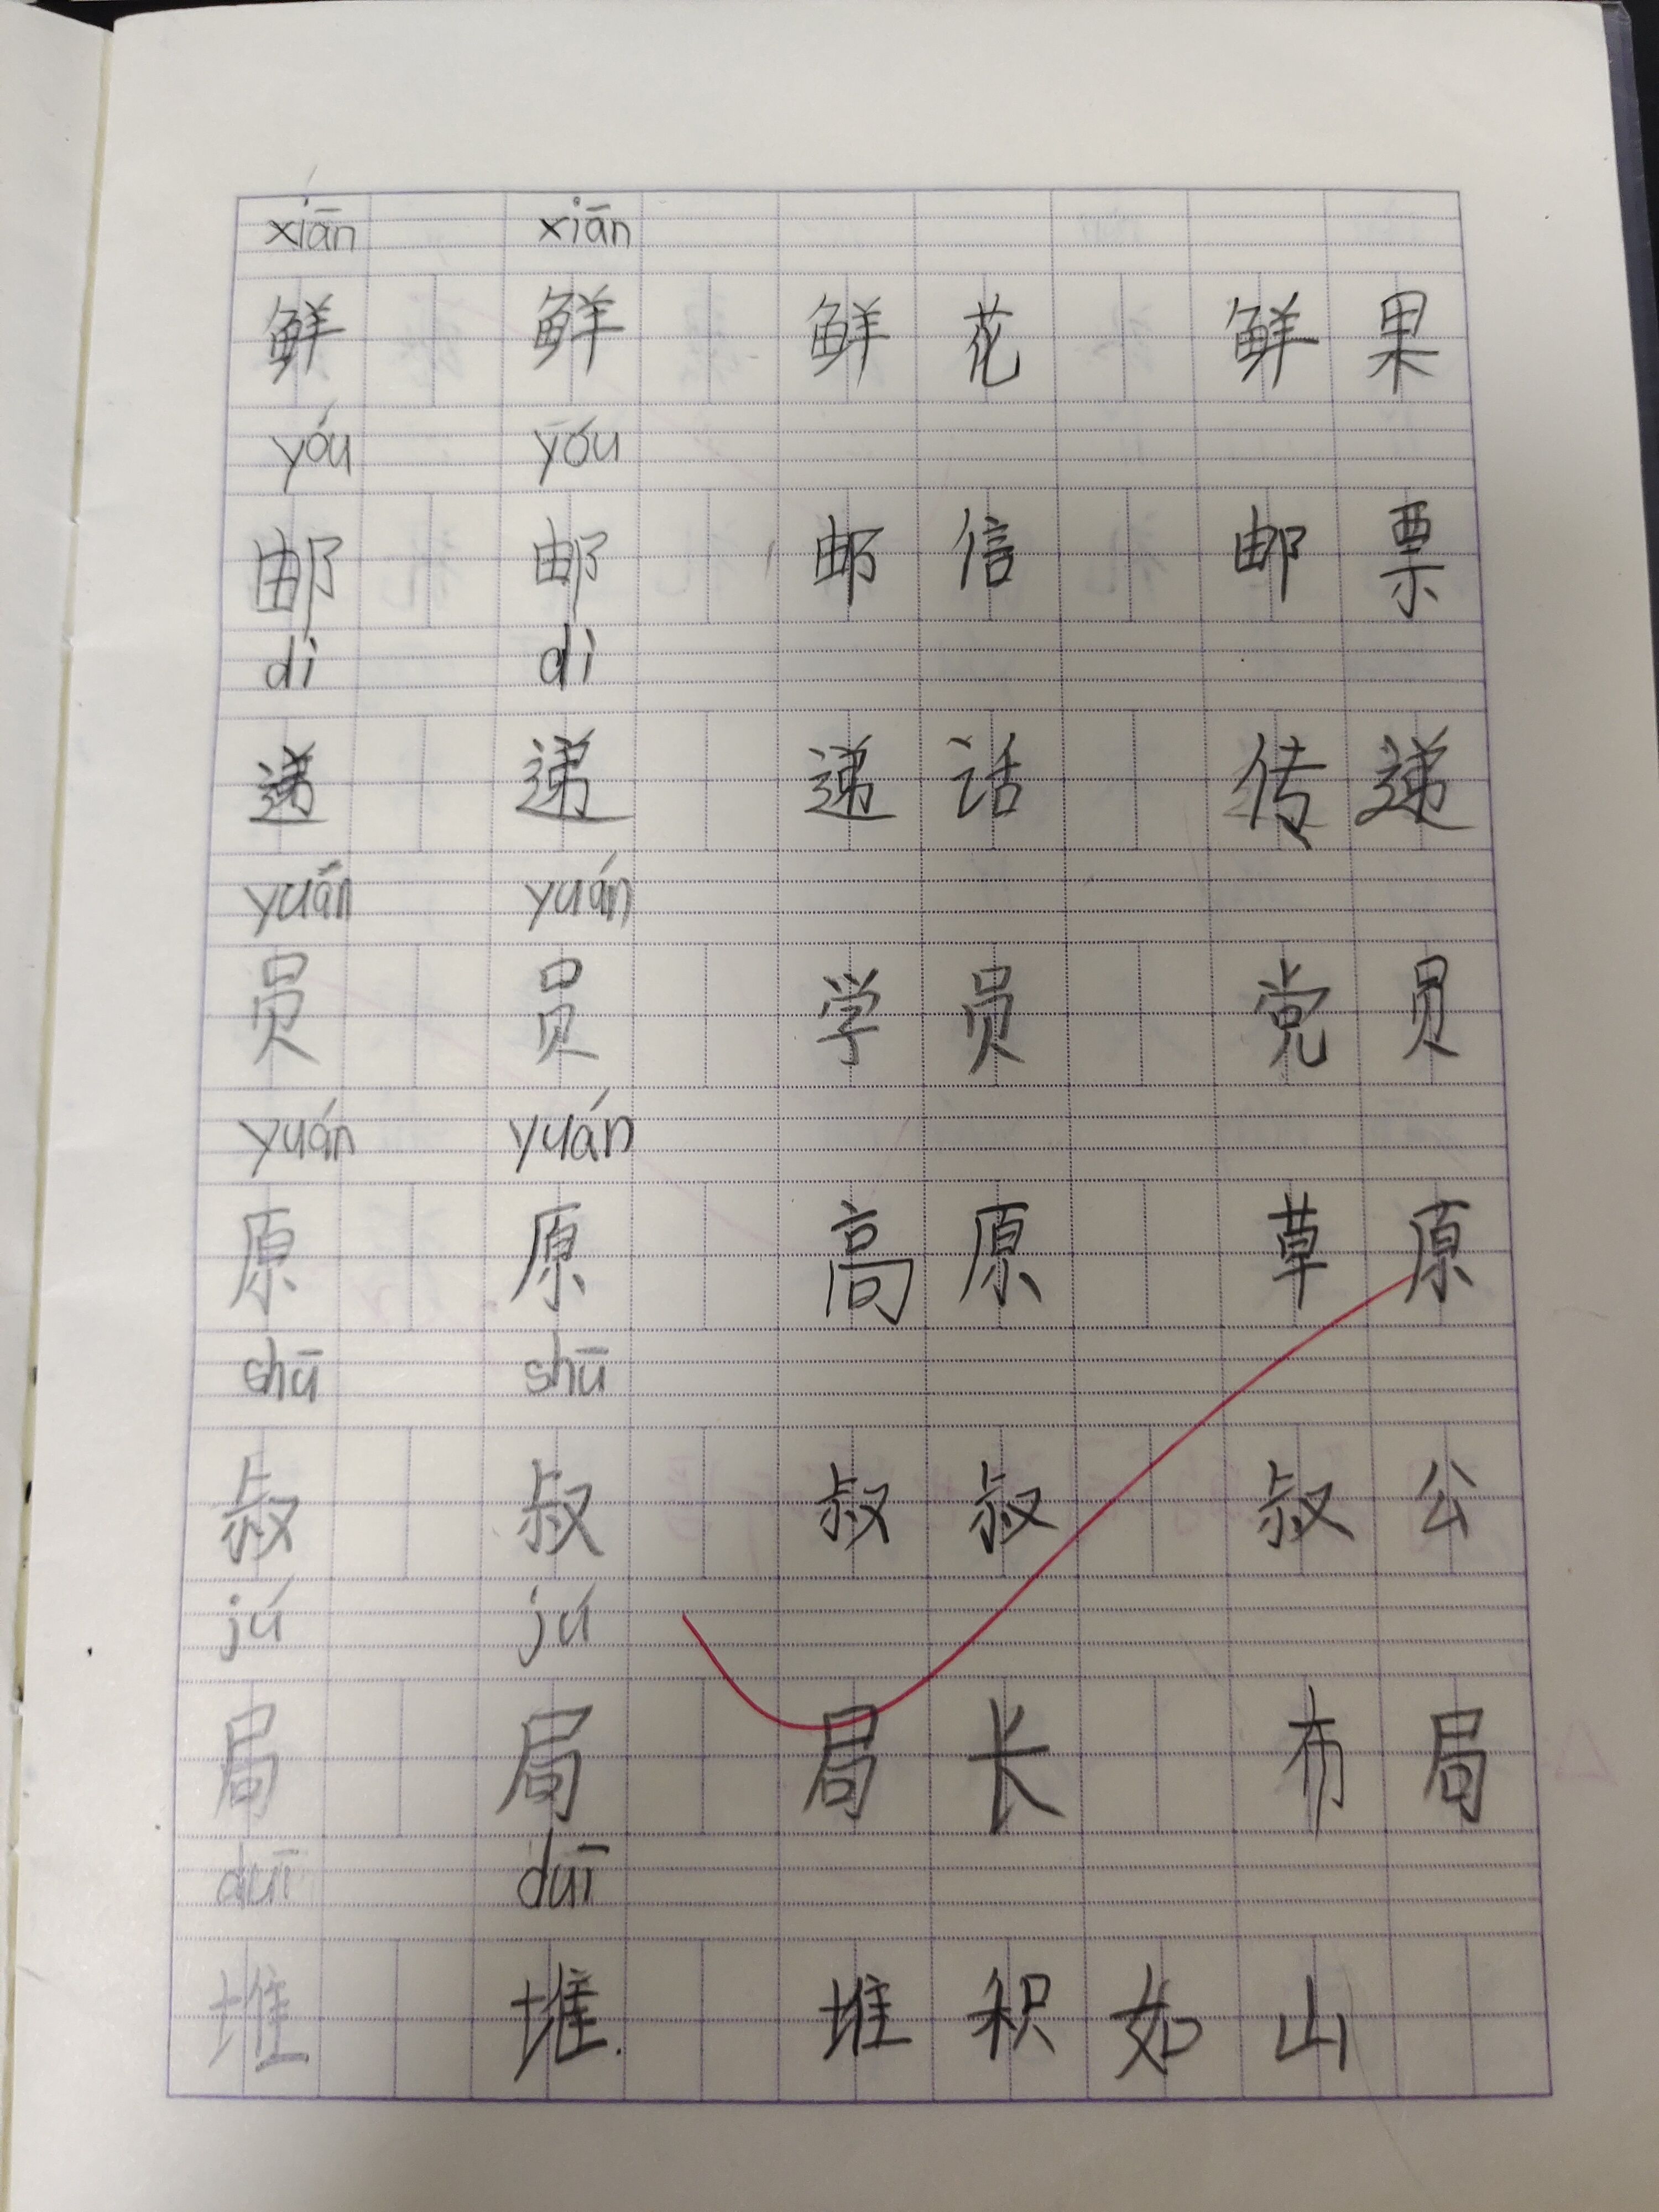 xiān xiān
鲜 鲜 鲜花 鲜果
yóu yóu
邮 邮 邮信 邮票
dì dì
递 递 递话 传递
yuán yuán
员 员 学员 党员
yuán yuán
原 原 高原 草原
shū shū
叔 叔 叔叔 叔公
jú jú
局 局 局长 布局
duī duī
堆 堆 堆积如山